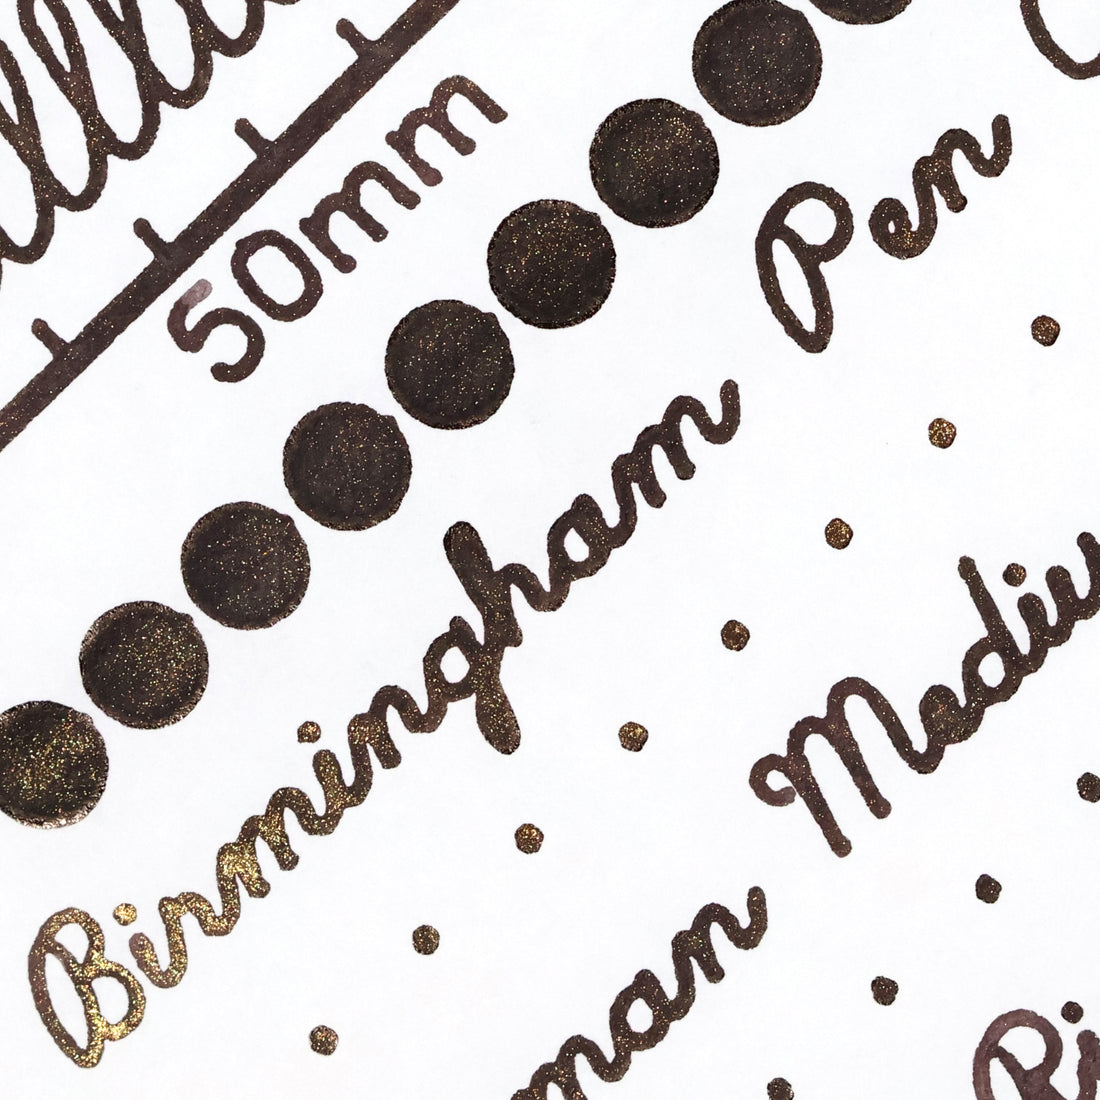 50mm
Birmingham Pen
man Mediu
Ri